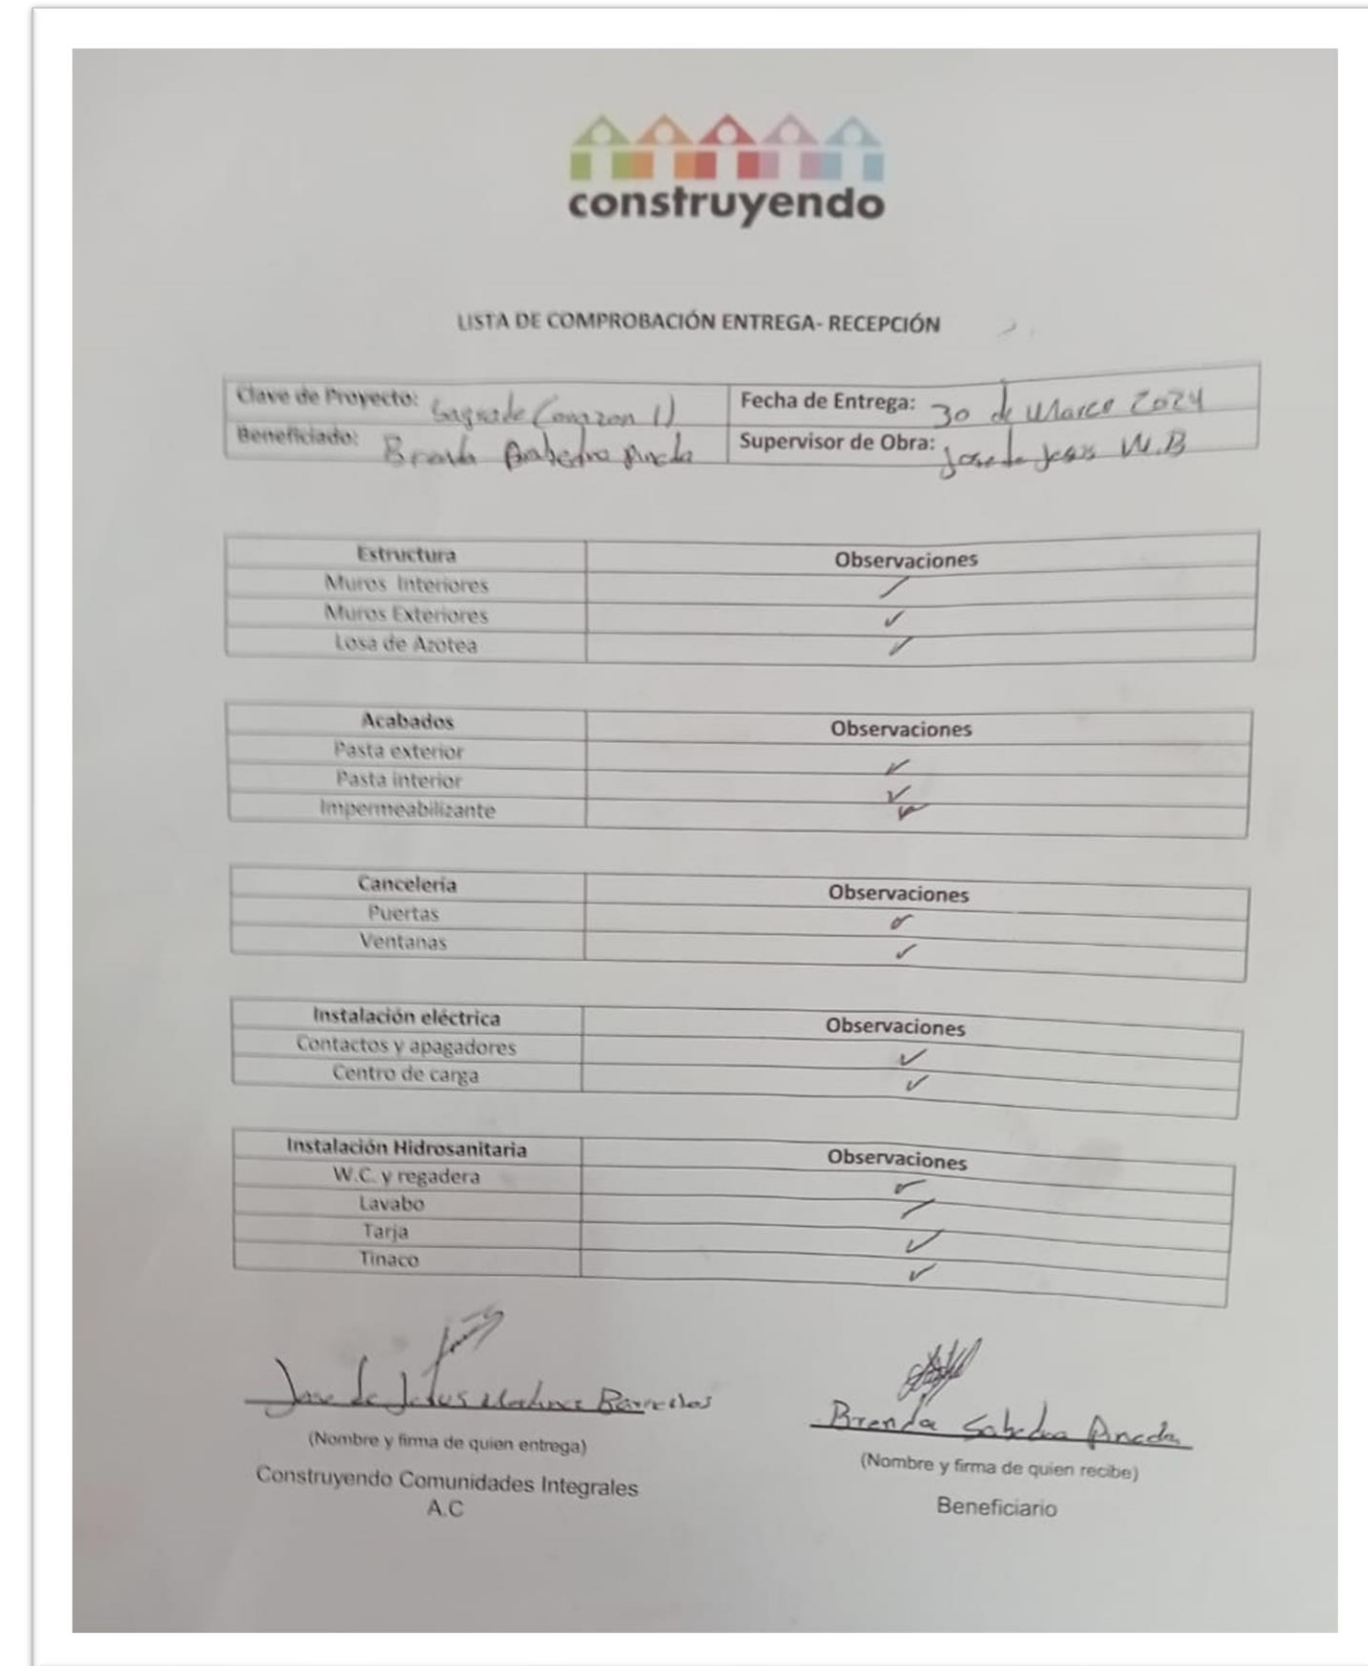 construyendo
LISTA DE COMPROBACIÓN ENTREGA- RECEPCIÓN
Clave de Proyecto: Sagrado Corazon 1) Fecha de Entrega: 30 de Marzo 2024
Beneficiado: Brenda Pineda Supervisor de Obra: Jose de Jesus M.B
Estructura Observaciones
Muros Interiores
Muros Exteriores ✓
Losa de Azotea ✓
Acabados Observaciones
Pasta exterior ✓
Pasta interior ✓
Impermeabilizante ✓
Cancelería Observaciones
Puertas ✓
Ventanas ✓
Instalación eléctrica Observaciones
Contactos y apagadores ✓
Centro de carga ✓
Instalación Hidrosanitaria Observaciones
W.C. y regadera ✓
Lavabo ✓
Tarja ✓
Tinaco ✓
Jose de Jesus Brenda Pineda
(Nombre y firma de quien entrega) (Nombre y firma de quien recibe)
Construyendo Comunidades Integrales Beneficiario
A.C